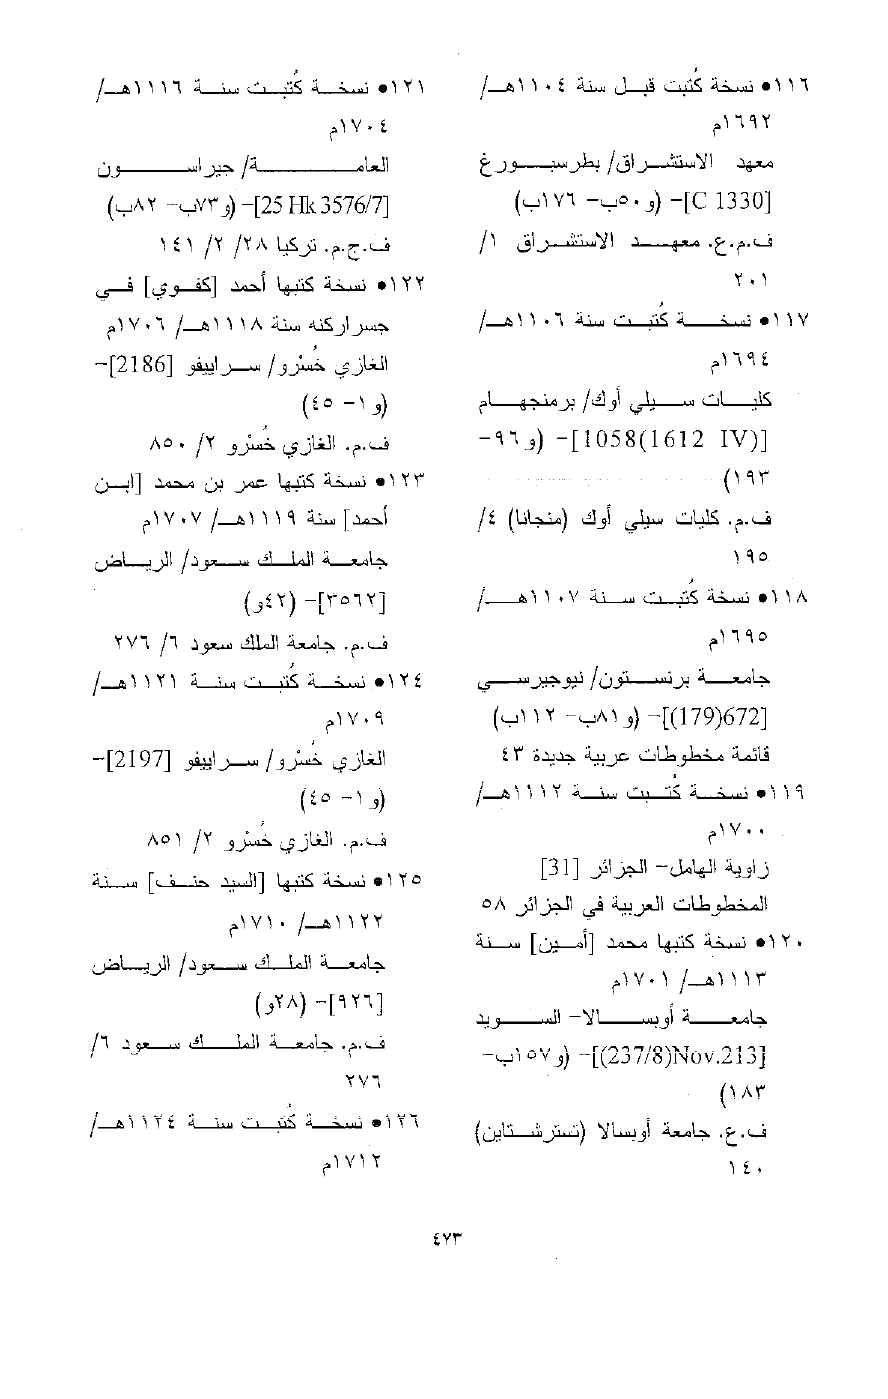 ١١٦• نسخة كُتبت قبل سنة ١١٠٤هـ/
١٦٩٢م
معهد الاستشراق/ بطرسبورغ
[C 1330]- (و٥٠ب- ١٧٦ب)
ف.م.ع. معهد الاستشراق ١/
٢٠١
١١٧• نسخة كُتبت سنة ١١٠٦هـ/
١٦٩٤م
كليات سيلي أوك/ برمنجهام
[1058(1612 IV)]- (و٩٦-
١٩٣)
ف.م. كليات سيلي أوك (منجانا) ٤/
١٩٥
١١٨• نسخة كُتبت سنة ١١٠٧هـ/
١٦٩٥م
جامعة برنستون/ نيوجيرسي
[672(179)]- (و٨١ب- ١١٢ب)
قائمة مخطوطات عربية جديدة ٤٣
١١٩• نسخة كُتبت سنة ١١١٢هـ/
١٧٠٠م
زاوية الهامل- الجزائر [31]
المخطوطات العربية في الجزائر ٥٨
١٢٠• نسخة كتبها محمد [أمين] سنة
١١١٣هـ/ ١٧٠١م
جامعة أوبسالا- السويد
[Nov.213(237/8)]- (و١٥٧ب-
١٨٣)
ف.ع. جامعة أوبسالا (تسترشتاين)
١٤٠
١٢١• نسخة كُتبت سنة ١١١٦هـ/
١٧٠٤م
العامة/ جيراسون
[25 Hk 3576/7]- (و٧٣ب- ٨٢ب)
ف.ج.م. تركيا ٢٨/ ٢/ ١٤١
١٢٢• نسخة كتبها أحمد [كفوي] في
جسراركنه سنة ١١١٨هـ/ ١٧٠٦م
الغازي خُسْرو/ سراييفو [2186]-
(و١- ٤٥)
ف.م. الغازي خُسْرو ٢/ ٨٥٠
١٢٣• نسخة كتبها عمر بن محمد [ابن
أحمد] سنة ١١١٩هـ/ ١٧٠٧م
جامعة الملك سعود/ الرياض
[٣٥٦٢]- (٤٢و)
ف.م. جامعة الملك سعود ٦/ ٢٧٦
١٢٤• نسخة كُتبت سنة ١١٢١هـ/
١٧٠٩م
الغازي خُسْرو/ سراييفو [2197]-
(و١- ٤٥)
ف.م. الغازي خُسْرو ٢/ ٨٥١
١٢٥• نسخة كتبها [السيد حنف] سنة
١١٢٢هـ/ ١٧١٠م
جامعة الملك سعود/ الرياض
[٩٢٦]- (٢٨و)
ف.م. جامعة الملك سعود ٦/
٢٧٦
١٢٦• نسخة كُتبت سنة ١١٢٤هـ/
١٧١٢م
٤٧٣